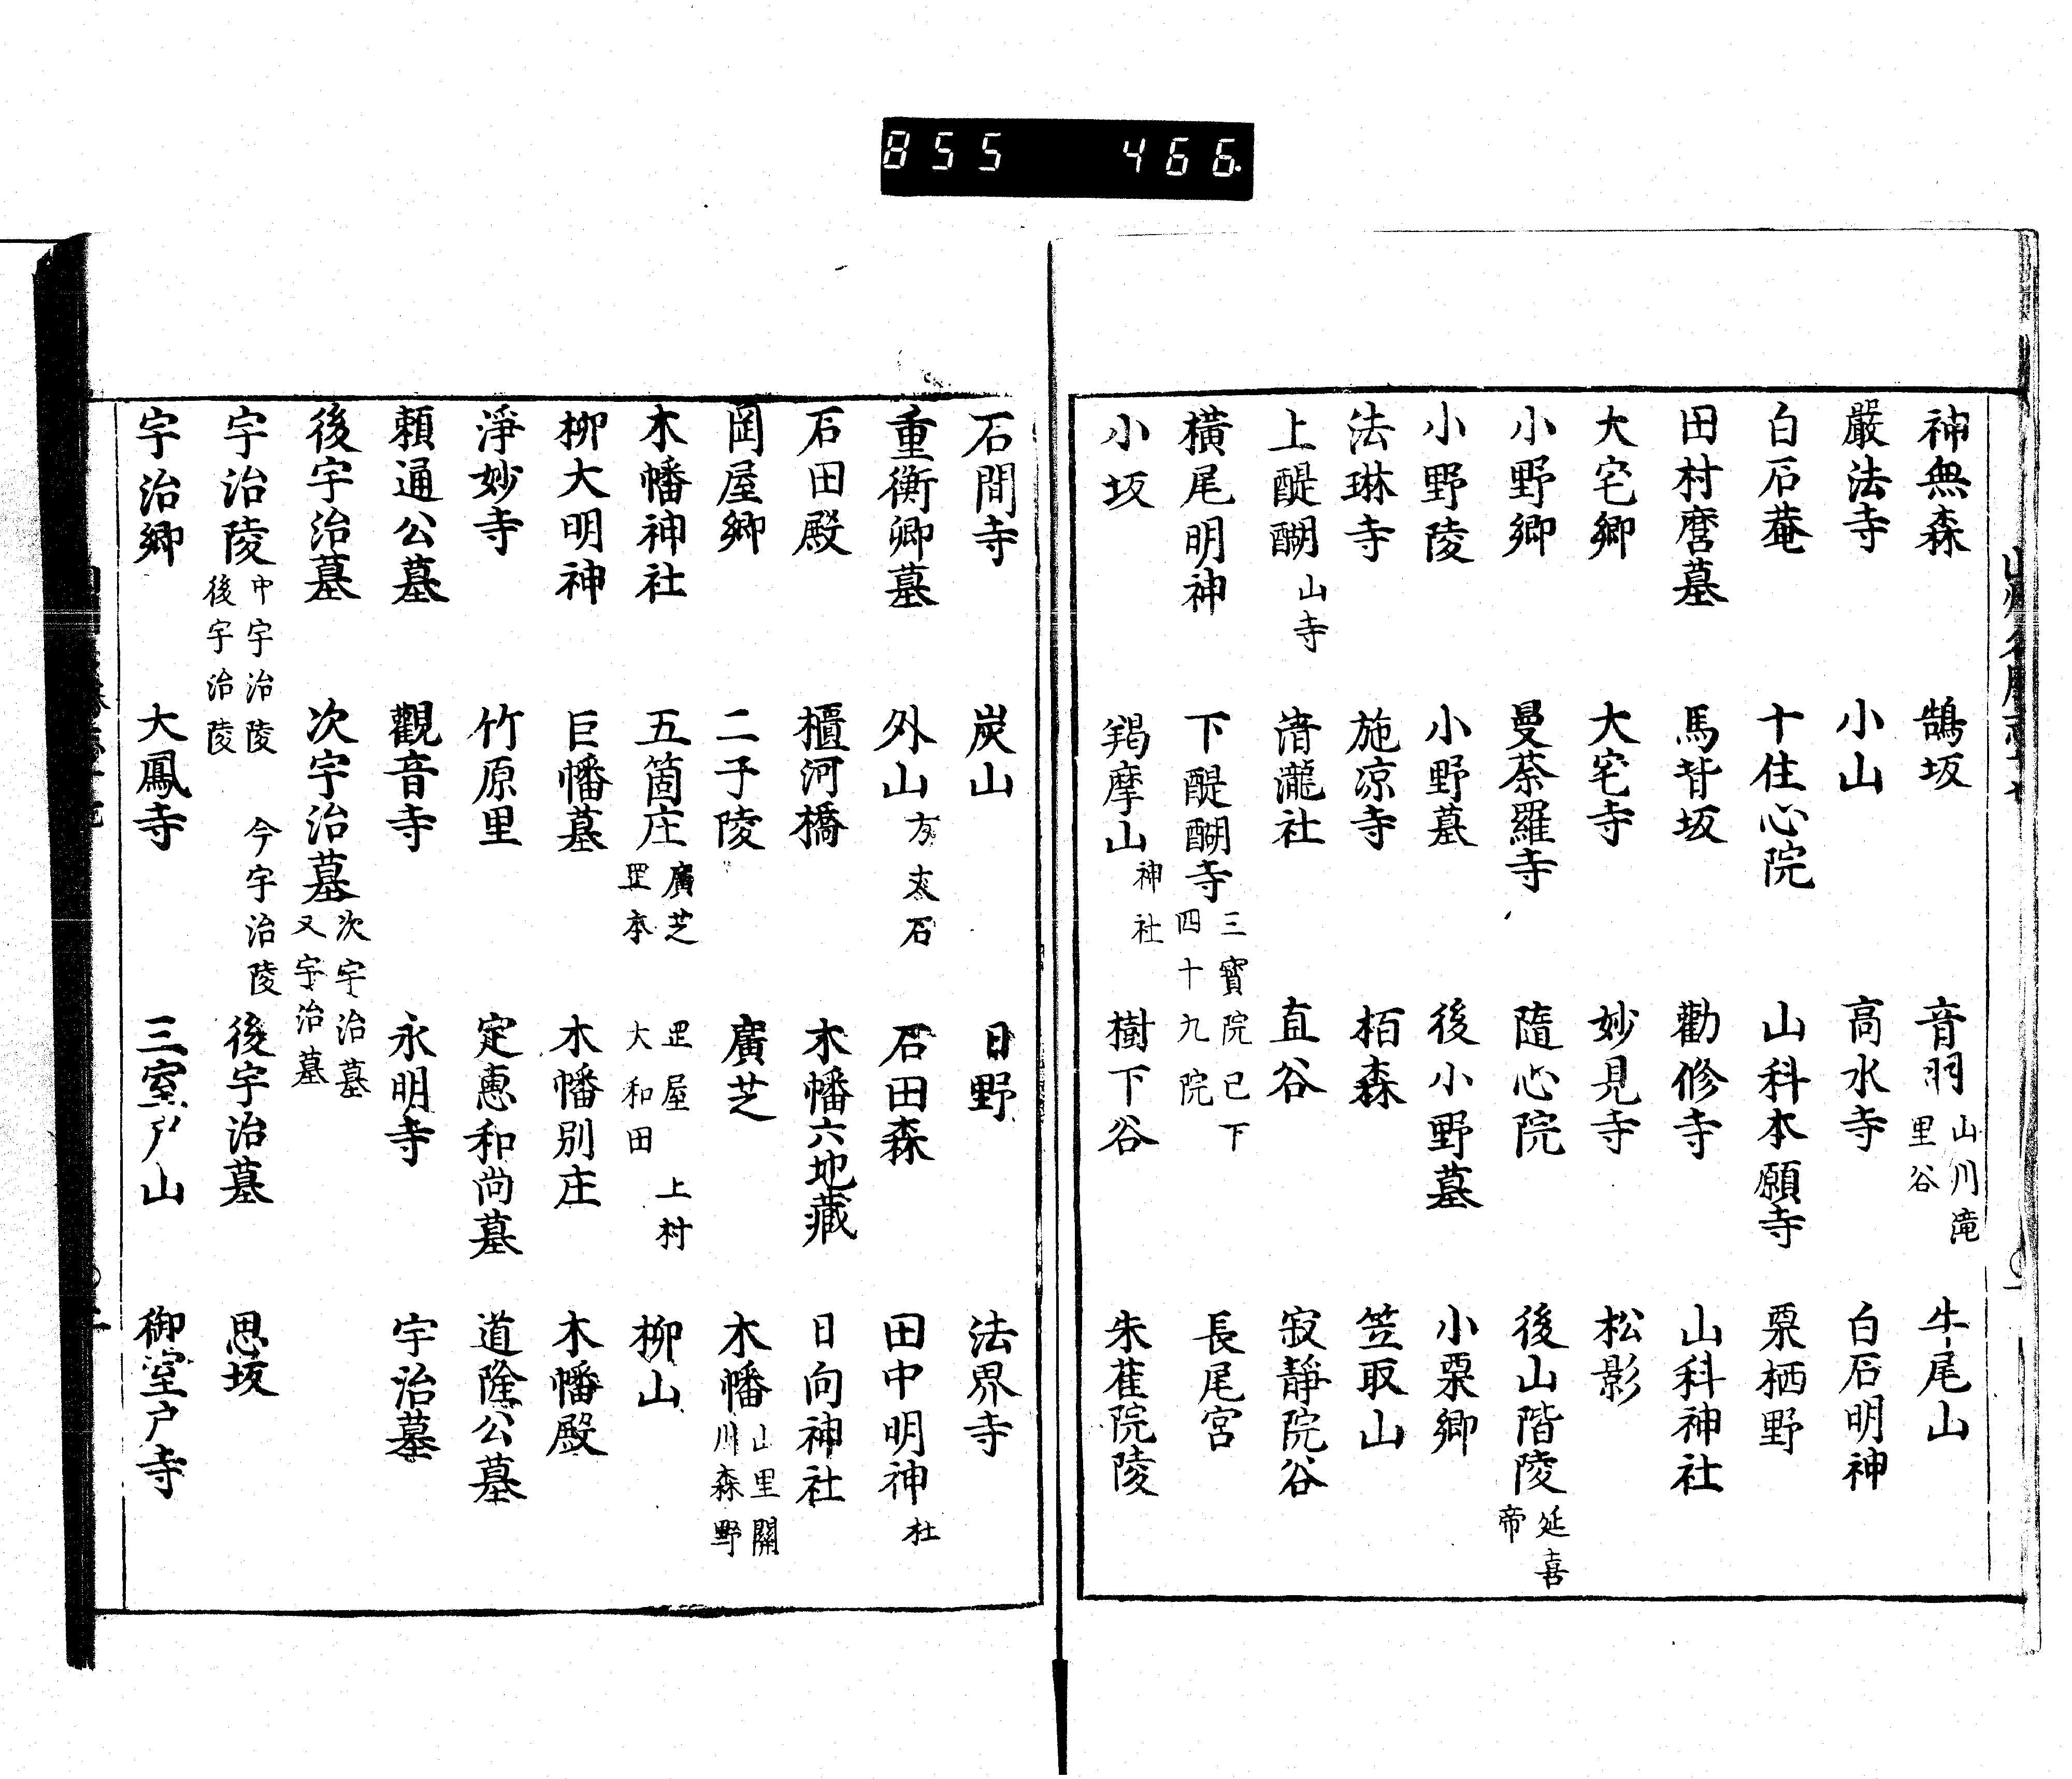 855 466.
神無森 鵠坂 音羽 山川滝 里谷 牛尾山
嚴法寺 小山 高水寺 白石明神
白石菴 十住心院 山科本願寺 栗栖野
田村麿墓 馬背坂 勸修寺 山科神社
大宅郷 大宅寺 妙見寺 松影
小野郷 曼荼羅寺 隨心院 後山階陵 延喜帝
小野陵 小野墓 後小野墓 小栗郷
法琳寺 施凉寺 栢森 笠取山
上醍醐 山寺 清瀧社 直谷 寂靜院谷
橫尾明神 下醍醐寺 三寳院已下 四十九院 長尾宮
小坂 羯摩山 神社 樹下谷 朱雀院陵
石間寺 炭山 日野 法界寺
重衡卿墓 外山 方丈石 石田森 田中明神 社
石田殿 櫃河橋 木幡六地藏 日向神社
岡屋郷 二子陵 廣芝 木幡 山里關 川森野
木幡神社 五箇庄 廣芝 岡本 岡屋 大和田 上村 柳山
柳大明神 巨幡墓 木幡別庄 木幡殿
淨妙寺 竹原里 定惠和尚墓 道隆公墓
頼通公墓 觀音寺 永明寺 宇治墓
後宇治墓 次宇治墓 次宇治墓 又宇治墓
宇治陵 中宇治陵 後宇治陵 今宇治陵 後宇治墓 思坂
宇治郷 大鳳寺 三室戸山 御室戸寺